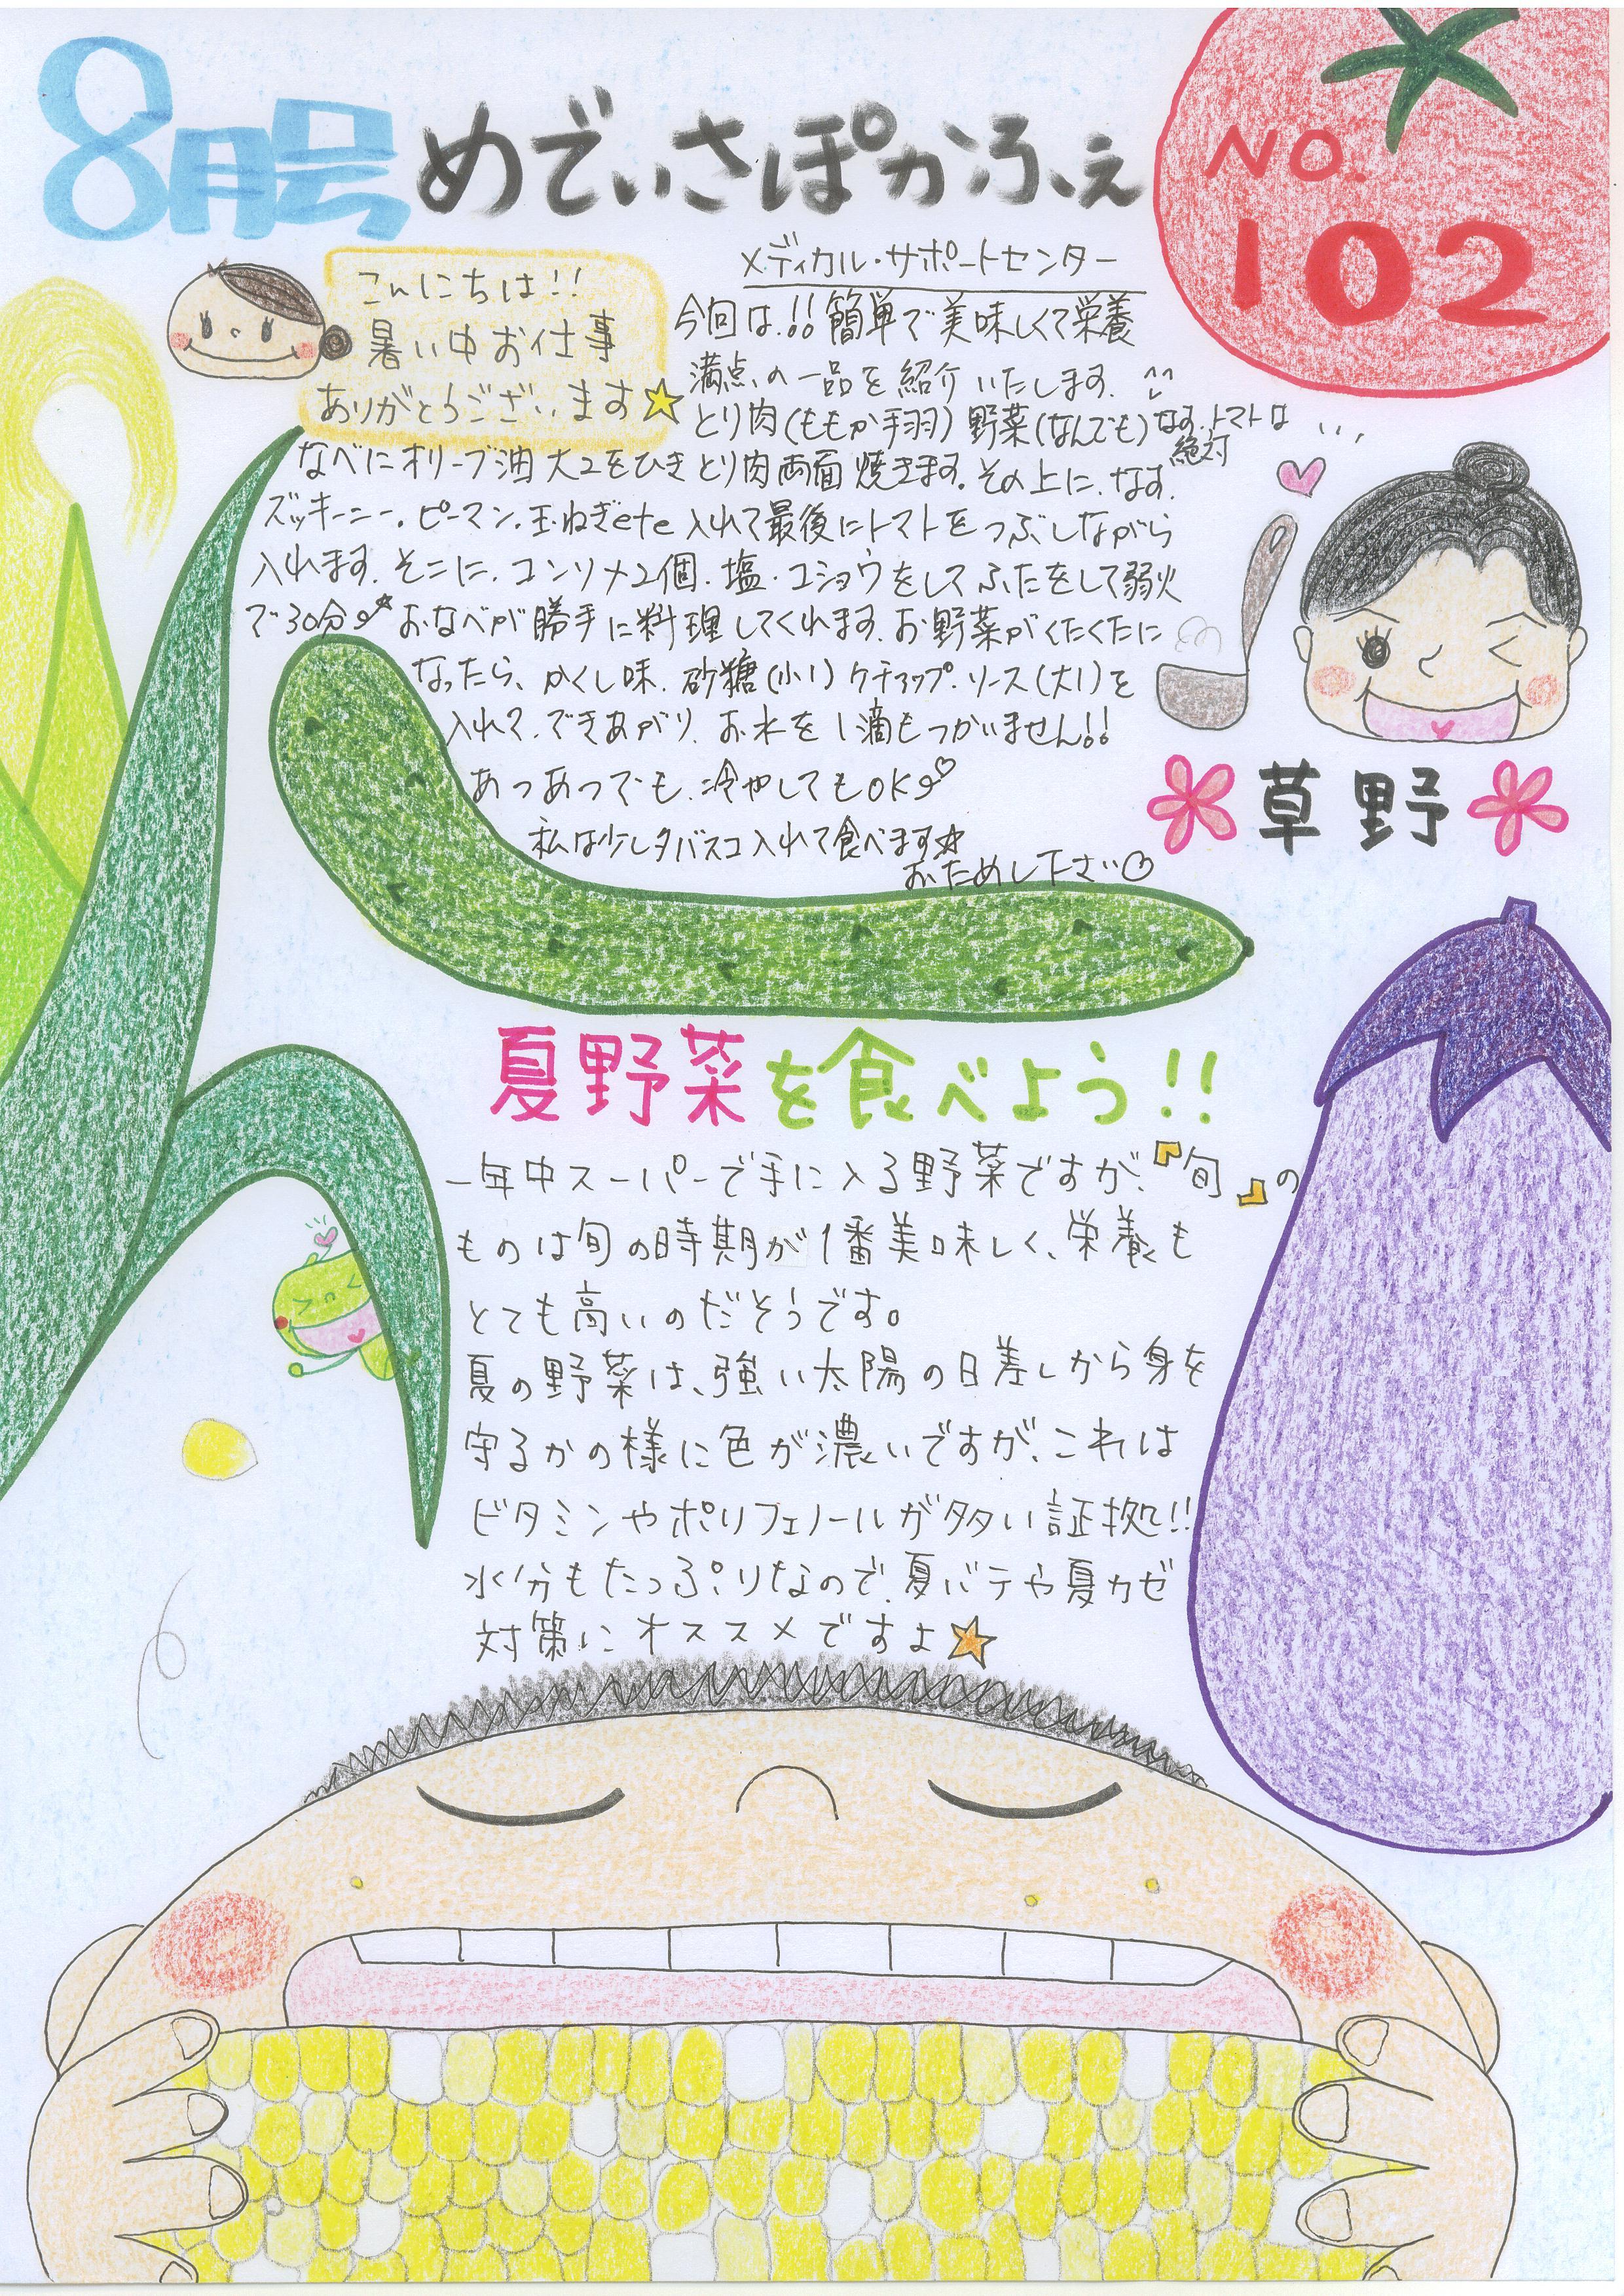 8月号 めでぃさぽかふぇ
NO.
102
メディカル・サポートセンター
こんにちは!!
暑い中お仕事
ありがとうございます☆
今回は、!!簡単で美味しくて栄養
満点の一品を紹介いたします。^^
とり肉(ももか手羽)野菜(なんでも)なす、トマトは
絶対
なべにオリーブ油大2をひきとり肉両面焼きます。その上に、なす、
ズッキーニー、ピーマン、玉ねぎetc入れて最後にトマトをつぶしながら
入れます。そこに、コンソメ2個、塩・コショウをしてふたをして弱火
で30分♪☆おなべが勝手に料理してくれます。お野菜がくたくたに
なったら、かくし味、砂糖(小1)ケチャップ・ソース(大1)を
入れて、できあがり。お水を1滴もつかいません!!
あつあつでも、冷やしてもOK♪♡
私は少しタバスコ入れて食べます☆
おためし下さい
草野
夏野菜を食べよう!!
一年中スーパーで手に入る野菜ですが、『旬』の
ものは旬の時期が1番美味しく、栄養も
とても高いのだそうです。
夏の野菜は、強い太陽の日差しから身を
守るかの様に色が濃いですが、これは
ビタミンやポリフェノールが多い証拠!!
水分もたっぷりなので、夏バテや夏カゼ
対策にオススメですよ☆